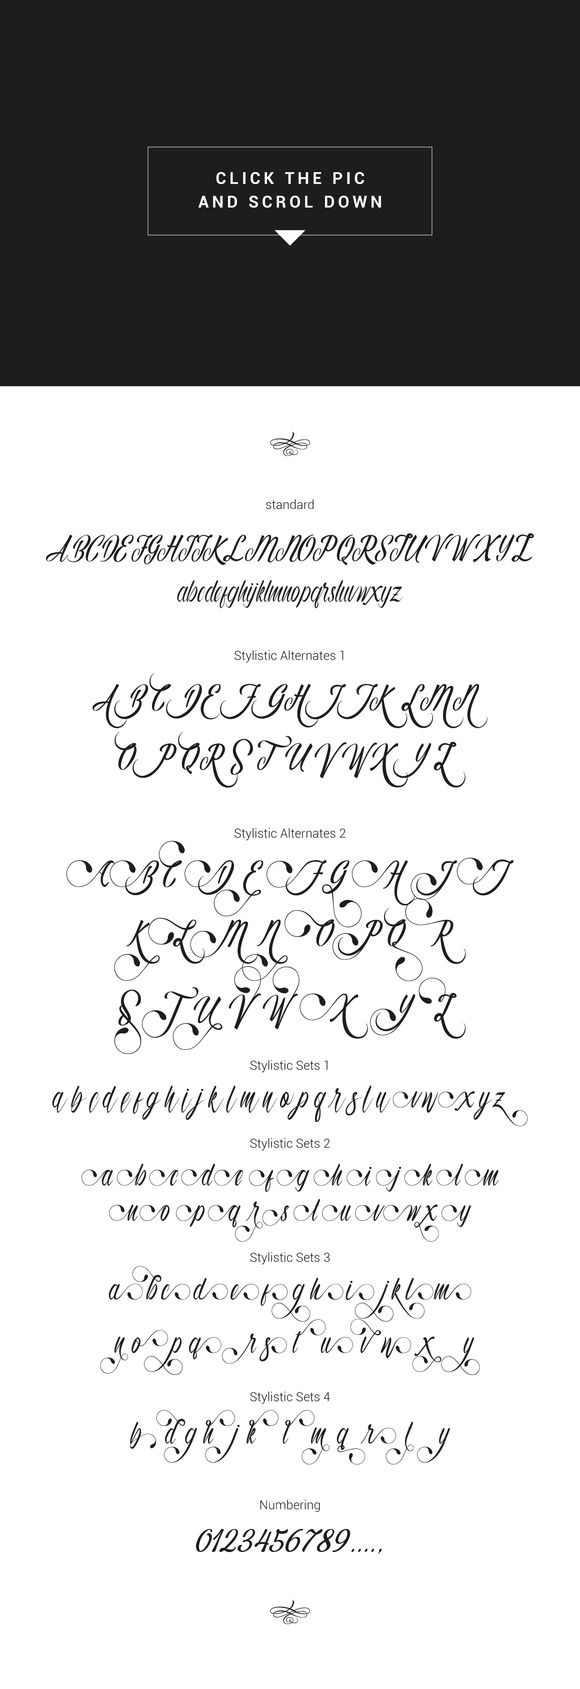 CLICK THE PIC
AND SCROL DOWN
standard
ABCDEFGHIJKLMNOPQRSTUVWXYZ
abcdefghijklmnopqrstuvwxyz
Stylistic Alternates 1
ABCDEFGHIJKLMN
OPQRSTUVWXYZ
Stylistic Alternates 2
ABCDEFGHIJ
KLMNOPQR
STUVWXYZ
Stylistic Sets 1
abcdefghijklmnopqrstuvwxyz
Stylistic Sets 2
abcdefghijklm
nopqrstuvwxy
Stylistic Sets 3
abcdefghijklm
nopqrstuvwxy
Stylistic Sets 4
b d g h j k l m q r t y
Numbering
0123456789....,